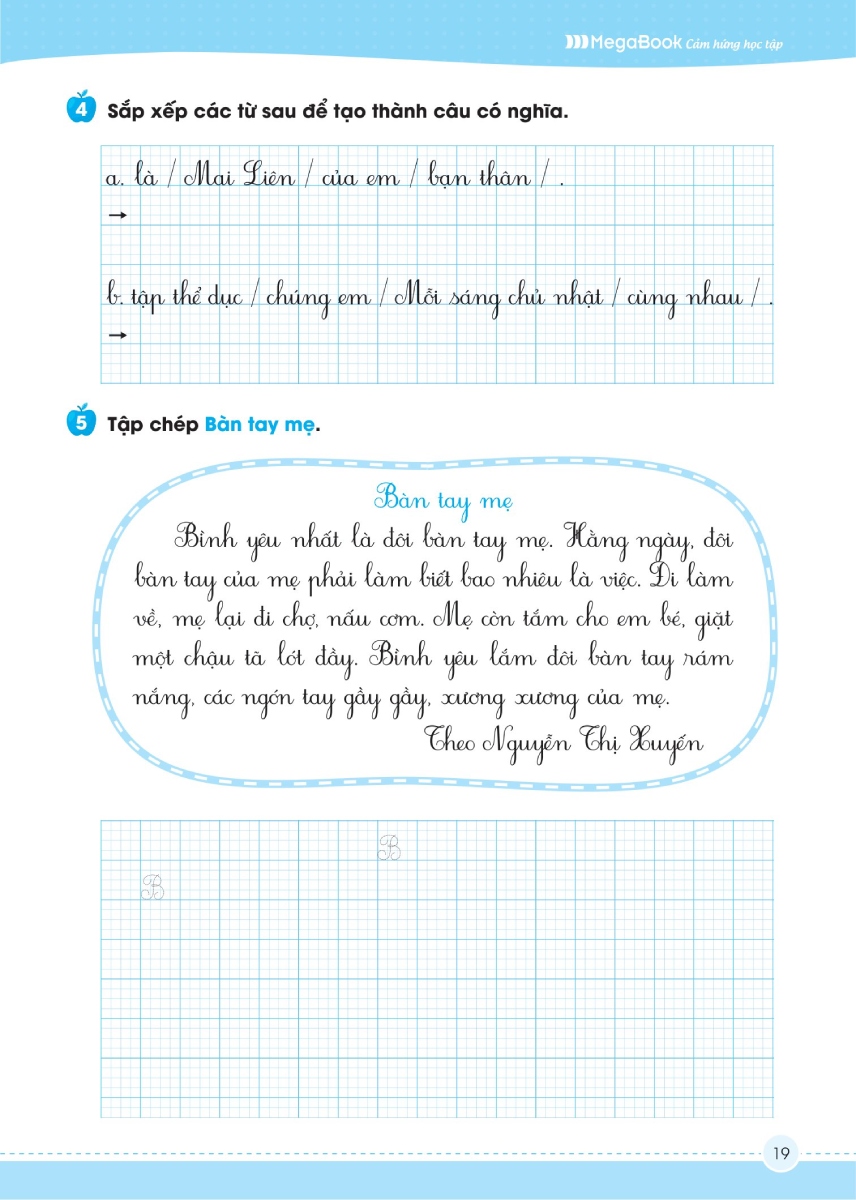 MegaBook Cảm hứng học tập
4 Sắp xếp các từ sau để tạo thành câu có nghĩa.
a. là / Mai Liên / của em / bạn thân / .
→
b. tập thể dục / chúng em / Mỗi sáng chủ nhật / cùng nhau / .
→
5 Tập chép Bàn tay mẹ.
Bàn tay mẹ
Bình yêu nhất là đôi bàn tay mẹ. Hằng ngày, đôi
bàn tay của mẹ phải làm biết bao nhiêu là việc. Đi làm
về, mẹ lại đi chợ, nấu cơm. Mẹ còn tắm cho em bé, giặt
một chậu tã lót đầy. Bình yêu lắm đôi bàn tay rám
nắng, các ngón tay gầy gầy, xương xương của mẹ.
Theo Nguyễn Thị Xuyến
B
B
19